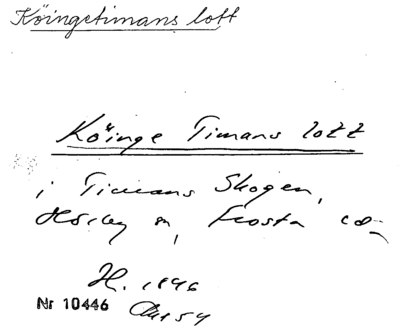 Köingetimans lott
Köinge Timans lott
i Timans Skogen,
Hörby sn, Frosta hd
H. 1846
Nr 10446